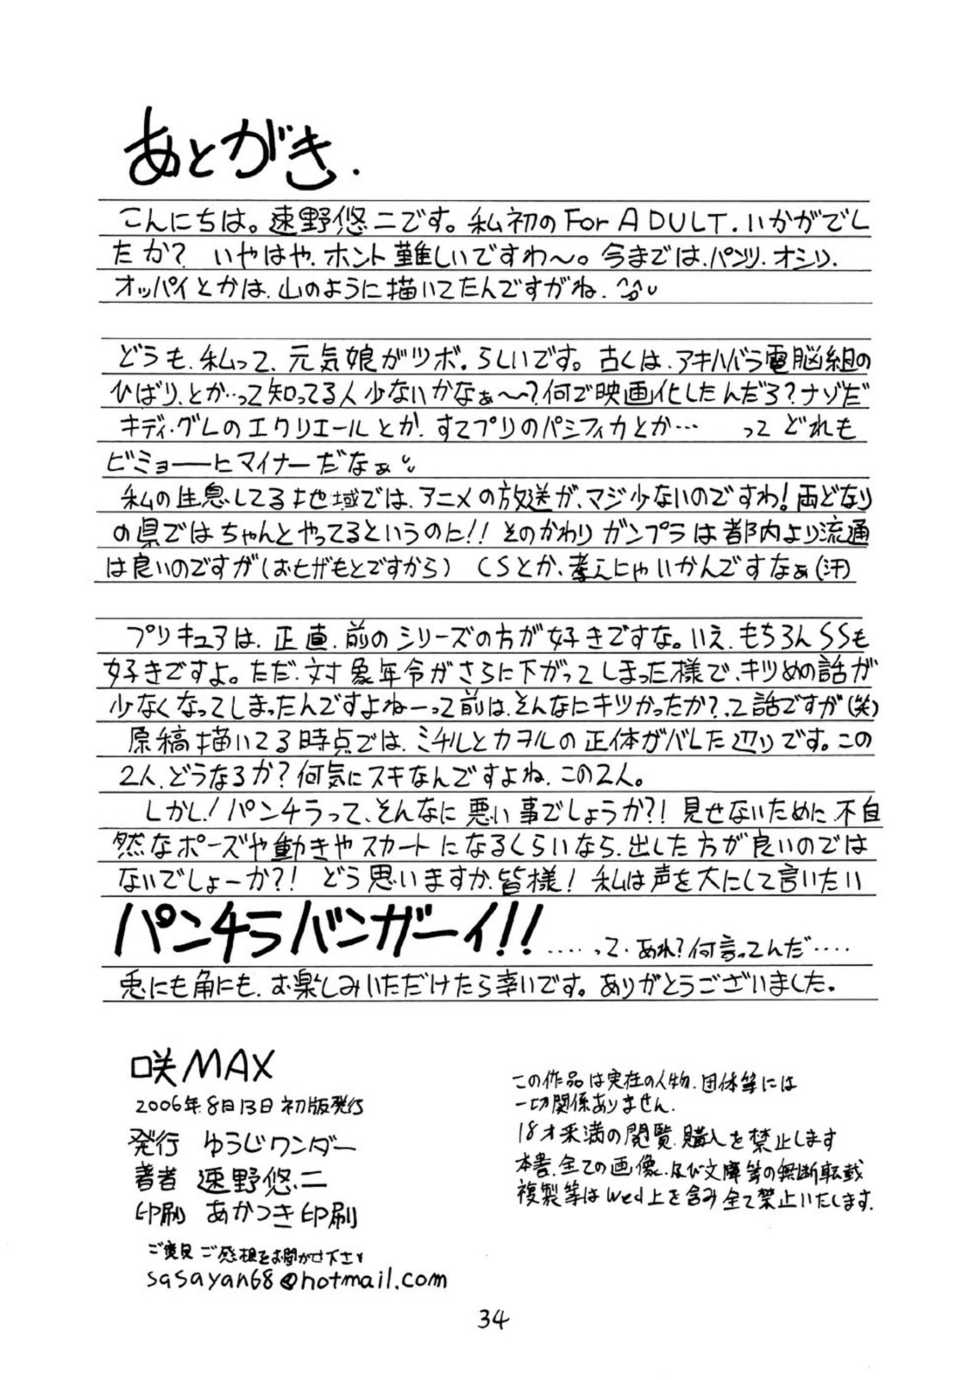 あとがき.
こんにちは。速野悠二です。私初のFor ADULT.いかがでし
たか?　いやはや、ホント難しいですわ〜。今までは、パンツ、オシリ、
オッパイとかは、山のように描いてたんですがね、
どうも、私って、元気娘がツボ。らしいです。古くは、アキハバラ電脳組の
ひばり、とか…って知ってる人少ないかなぁ〜?何で映画化したんだろ?ナゾだ
キディ・グレのエクリエールとか、すてプリのパシフィカとか…　って どれも
ビミョーーにマイナーだなぁ
私の生息してる地域では、アニメの放送が、マジ少ないのですわ!両どなり
の県ではちゃんとやってるというのに!!そのかわりガンプラは都内より流通
は良いのですが(おヒザもとですから)　CSとか、考えにゃいかんですなぁ(汗)
プリキュアは、正直、前のシリーズの方が好きですな。いえ、もちろんSSも
好きですよ。ただ、対象年令がさらに下がってしまった様で、キツめの話が
少なくなってしまったんですよねーって前は、そんなにキツかったか?、って話ですが(笑)
原稿描いてる時点では、ミチルとカヲルの正体がバレた辺りです。この
2人、どうなるか?何気にスキなんですよね、この2人。
しかし!パンチラって、そんなに悪い事でしょうか?!見せないために、不自
然なポーズや動きやスカートになるくらいなら、出した方が良いのでは
ないでしょーか?!　どう思いますか、皆様!私は声を大にして言いたい
パンチラバンガーイ!!　.....って・あれ?何言ってんだ.....
兎にも角にも、お楽しみいただけたら幸いです。ありがとうございました。
咲MAX
2006年8月13日初版発行
発行　ゆうじワンダー
著者　速野悠二
印刷　あかつき印刷
ご意見ご感想をお聞かせ下さい
sasayan68@hotmail.com
この作品は実在の人物、団体等には
一切関係ありません.
18才未満の閲覧、購入を禁止します
本書、全ての画像、及び文庫等の無断転載
複製等はWed上を含み全て禁止いたします.
34